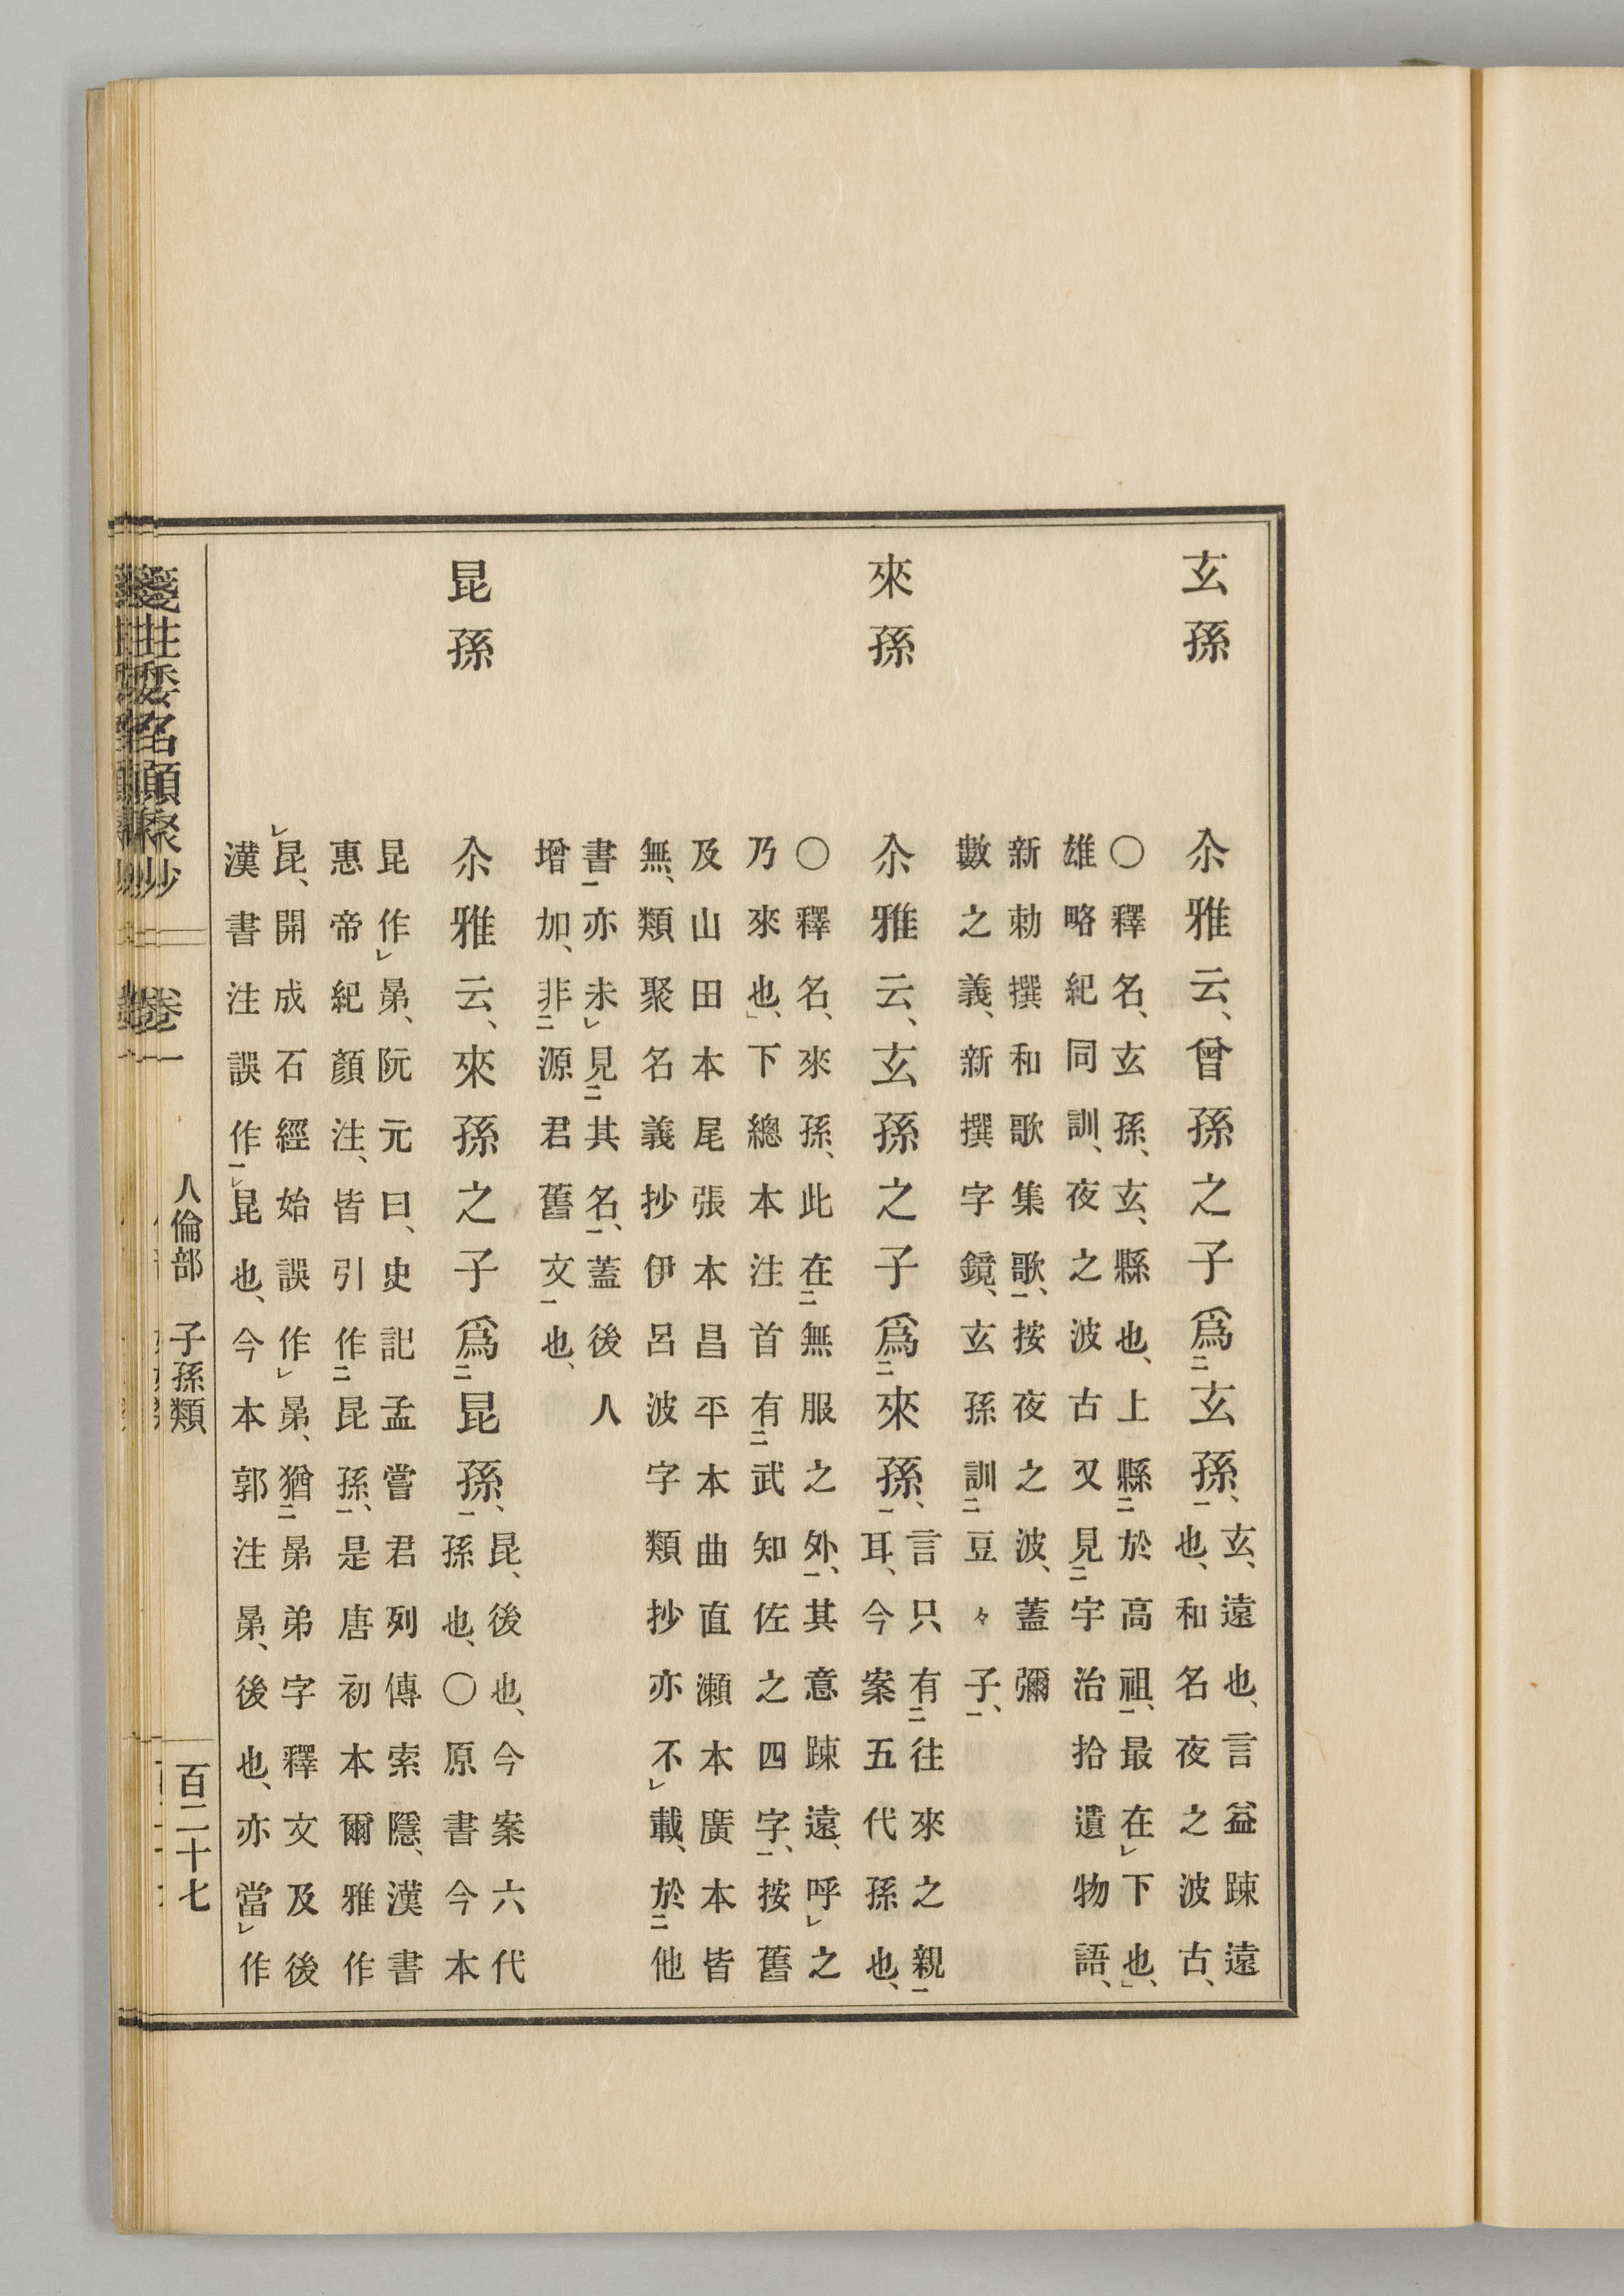 玄孫
尒雅云、曾孫之子爲玄孫、
玄、遠也、言益踈遠
也、和名夜之波古、
○釋名、玄孫、玄、縣也、上縣於高祖、最在下也、
雄略紀同訓、夜之波古又見宇治拾遺物語、
新勅撰和歌集歌、按夜之波、蓋彌
數之義、新撰字鏡、玄孫訓豆々子、
來孫
尒雅云、玄孫之子爲來孫、
言只有往來之親
耳、今案五代孫也、
○釋名、來孫、此在無服之外、其意踈遠、呼之
乃來也、下總本注首有武知佐之四字、按舊
及山田本尾張本昌平本曲直瀬本廣本皆
無、類聚名義抄伊呂波字類抄亦不載、於他
書亦未見其名、蓋後人
增加、非源君舊文也、
昆孫
尒雅云、來孫之子爲昆孫、
昆、後也、今案六代
孫也、○原書今本
昆作晜、阮元曰、史記孟嘗君列傳索隱、漢書
惠帝紀顏注、皆引作昆孫、是唐初本爾雅作
昆、開成石經始誤作晜、猶晜弟字釋文及後
漢書注誤作昆也、今本郭注晜、後也、亦當作
卷一
人倫部 子孫類
百二十七